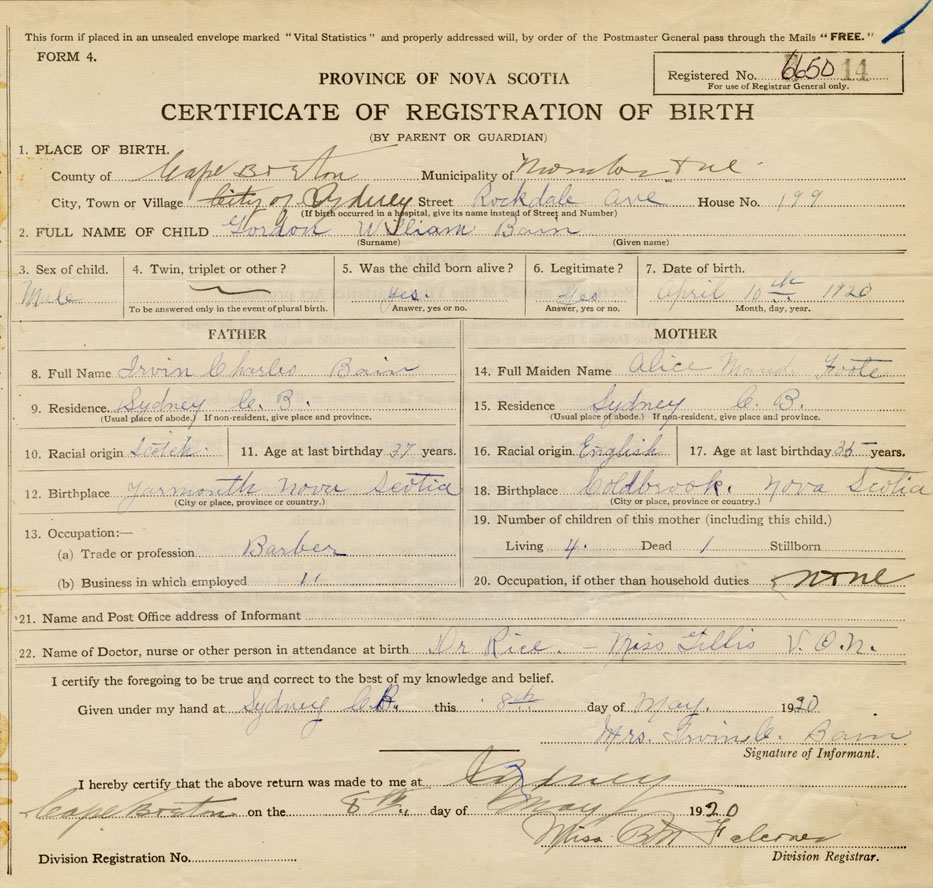 This form if placed in an unsealed envelope marked "Vital Statistics" and properly addressed will, by order of the Postmaster General pass through the Mails "FREE."
FORM 4.
Registered No. 6650 14
For use of Registrar General only.
PROVINCE OF NOVA SCOTIA
CERTIFICATE OF REGISTRATION OF BIRTH
(BY PARENT OR GUARDIAN)
1. PLACE OF BIRTH.
County of Cape Breton Municipality of
City, Town or Village City of Sydney Street Rockdale Ave House No. 199
(If birth occurred in a hospital, give its name instead of Street and Number)
2. FULL NAME OF CHILD Gordon William Bain
(Surname) (Given name)
3. Sex of child. 4. Twin, triplet or other? 5. Was the child born alive? 6. Legitimate? 7. Date of birth.
Male Yes. Yes April 10th 1920
To be answered only in the event of plural birth. Answer, yes or no. Answer, yes or no. Month, day, year.
FATHER MOTHER
8. Full Name Irvin Charles Bain 14. Full Maiden Name Alice Maud Foote
9. Residence. Sydney C. B. 15. Residence Sydney C. B.
(Usual place of abode.) If non-resident, give place and province. (Usual place of abode.) If non-resident, give place and province.
10. Racial origin Scotch. 11. Age at last birthday 37 years. 16. Racial origin English 17. Age at last birthday 35 years.
12. Birthplace Yarmouth Nova Scotia 18. Birthplace Coldbrook. Nova Scotia
(City or place, province or country.) (City or place, province or country.)
13. Occupation:— 19. Number of children of this mother (including this child.)
(a) Trade or profession Barber Living 4. Dead 1 Stillborn
(b) Business in which employed " 20. Occupation, if other than household duties none
21. Name and Post Office address of Informant
22. Name of Doctor, nurse or other person in attendance at birth Dr Rice. - Miss Gillis V. O. N.
I certify the foregoing to be true and correct to the best of my knowledge and belief.
Given under my hand at Sydney C.B. this 8th day of May. 1920
Mrs. Irvin C. Bain
Signature of Informant.
I hereby certify that the above return was made to me at Sydney
Cape Breton on the 8th day of May 1920
Miss Falconer
Division Registration No. Division Registrar.